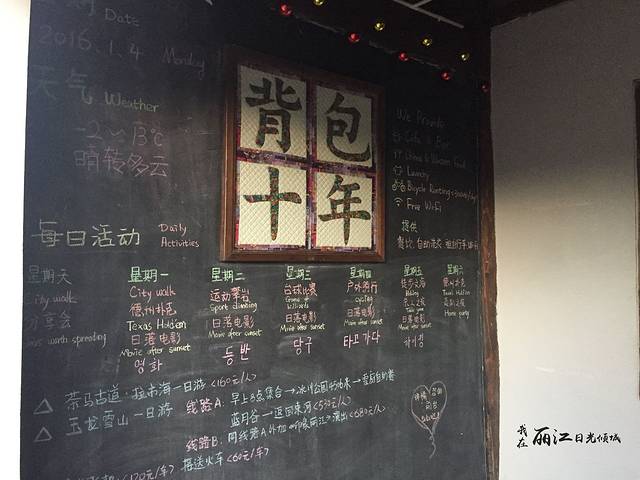 日期 Date
2016.1.4 Monday
天气 Weather
-2~13℃
晴转多云
背包
十年
We Provide
Cafe & Bar
Laundry
Bicycle Renting
Free Wi-Fi
提供
每日活动 Daily Activities
星期天
City walk
分享会
worth spreading
星期一
City walk
德州扑克
Texas Hold'em
日落电影
Movie after sunset
영화
星期二
运动攀岩
Sport climbing
日落电影
Movie after sunset
등반
星期三
台球比赛
Game of billiards
日落电影
Movie after sunset
당구
星期四
户外骑行
cycling
日落电影
Movie after sunset
타고 가다
星期五
日落电影
Movie after sunset
하이킹
星期六
德州扑克
Texas Hold'em
Home party
△ 茶马古道:拉市海一日游 <160元/人>
△ 玉龙雪山一日游 线路A: 早上8点集合→冰川公园4506米→
蓝月谷→返回束河<530元/人>
线路B: 同线路A外加《印象丽江》演出<680元/人>
接送火车<60元/车>
<120元/车>
我在丽江日光倾城